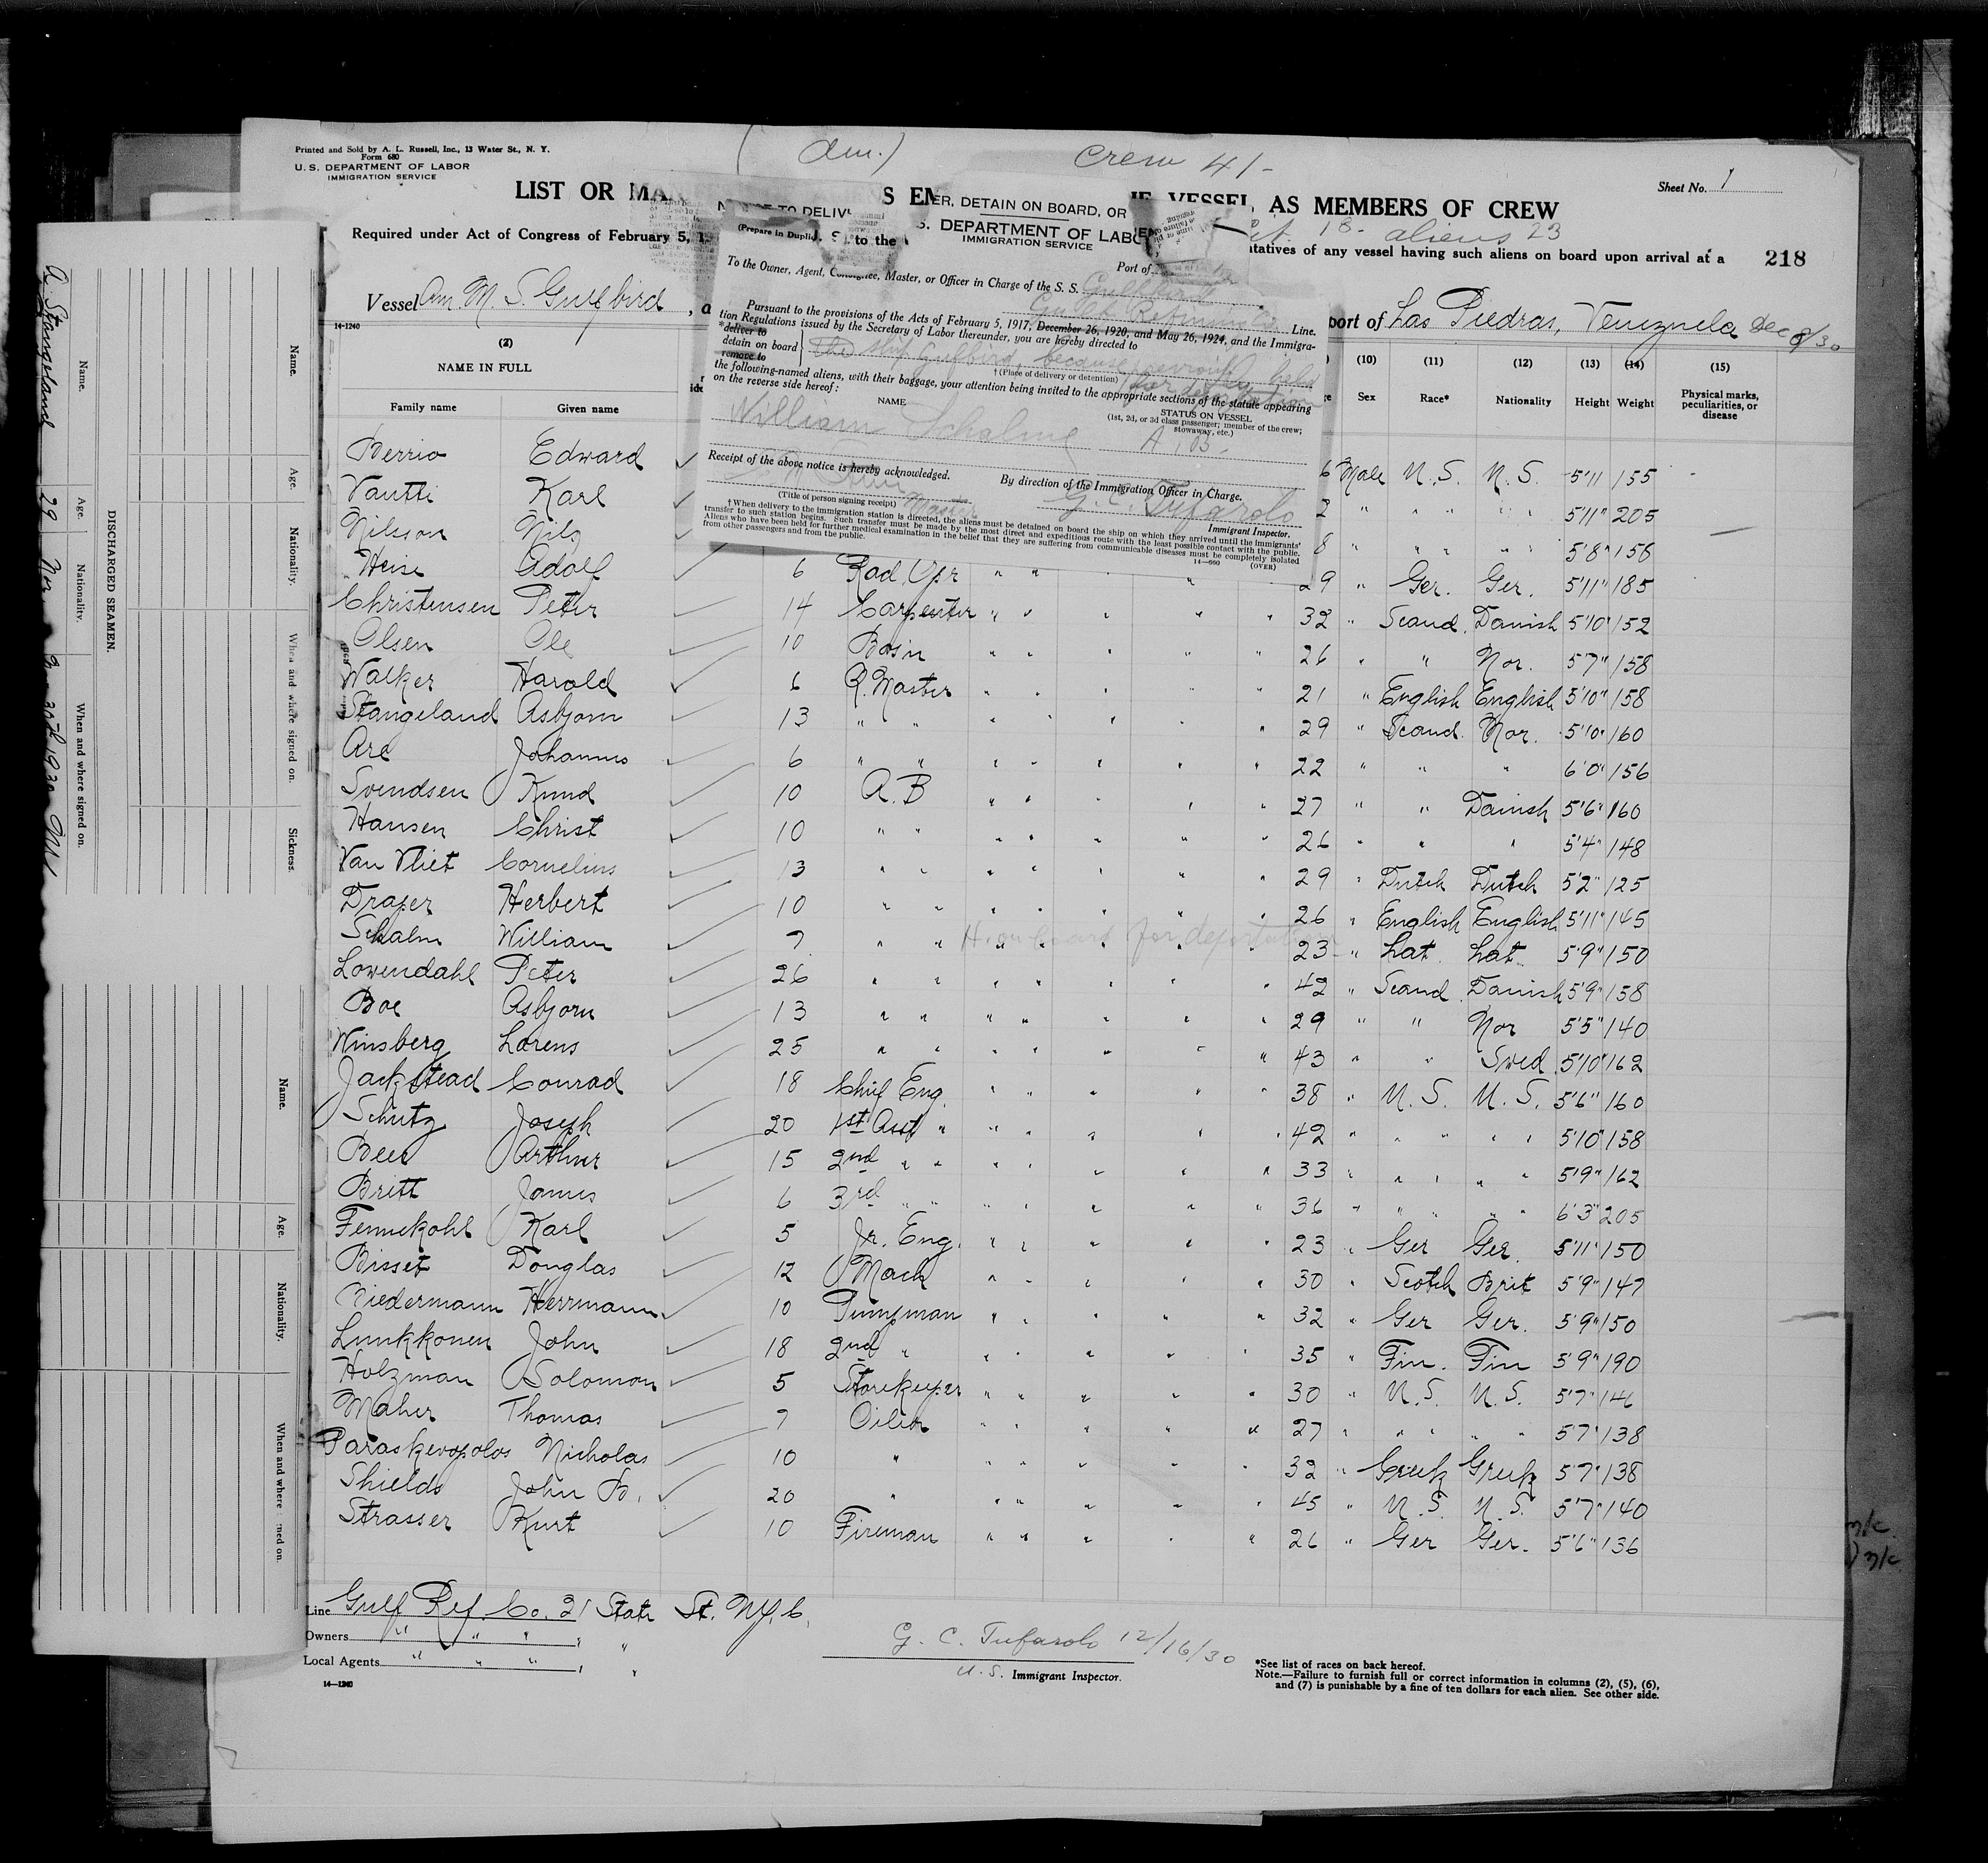 Printed and Sold by A. L. Russell, Inc., 13 Water St., N. Y.
Form 680
U. S. DEPARTMENT OF LABOR
IMMIGRATION SERVICE
(Am.)
Crew 41-
Sheet No. 1
LIST OR S EM VESSEL AS MEMBERS OF CREW
aliens 23
Required under Act of Congress of February 5, to the tatives of any vessel having such aliens on board upon arrival at a
218
Vessel Am. M. S. Gulfbird
port of Las Piedras, Venezuela Dec 8/30
ER, DETAIN ON BOARD, OR
(Prepare in Dupli
S. DEPARTMENT OF LABO
IMMIGRATION SERVICE
Port of
To the Owner, Agent, Consignee, Master, or Officer in Charge of the S. S. Gulfbird
Gulf Refining Co. Line.
Pursuant to the provisions of the Acts of February 5, 1917, December 26, 1920, and May 26, 1924, and the Immigra-
tion Regulations issued by the Secretary of Labor thereunder, you are hereby directed to
*deliver to
detain on board
remove to
the ship Gulfbird, because previously held
for deportation
†(Place of delivery or detention)
the following-named aliens, with their baggage, your attention being invited to the appropriate sections of the statute appearing
on the reverse side hereof:
NAME
STATUS ON VESSEL
(1st, 2d, or 3d class passenger; member of the crew;
stowaway, etc.)
William A. B.
Receipt of the above notice is hereby acknowledged.
By direction of the Immigration Officer in Charge.
Master
(Title of person signing receipt)
G. C. Tufarolo
Immigrant Inspector.
†When delivery to the immigration station is directed, the aliens must be detained on board the ship on which they arrived until the immigrants'
transfer to such station begins. Such transfer must be made by the most direct and expeditious route with the least possible contact with the public.
Aliens who have been held for further medical examination in the belief that they are suffering from communicable diseases must be completely isolated
from other passengers and from the public.
14—660 (OVER)
14-1240
(2) (10) (11) (12) (13) (14) (15)
NAME IN FULL
Family name Given name Sex Race* Nationality Height Weight Physical marks, peculiarities, or disease
Berrio Edward ✓ 6 Male U.S. U.S. 5'11 155
Vantti Karl ✓ 2 " " " " " 5'11" 205
Nilsson Nils ✓ 8 " " " " " 5'8" 156
Heise Adolf ✓ 6 Rad. Opr " " " " 29 " Ger. Ger. 5'11" 185
Christensen Peter ✓ 14 Carpenter " " " " " 32 " Scand. Danish 5'10" 152
Olsen Ole ✓ 10 Bosin " " " " " 26 " " Nor. 5'7" 158
Walker Harold ✓ 6 Q. Master " " " " " 21 " English English 5'10" 158
Stangeland Asbjorn ✓ 13 " " " " " " " 29 " Scand. Nor. 5'10" 160
Are Johannus ✓ 6 " " " " " " " 22 " " " 6'0" 156
Svendsen Knud ✓ 10 A. B " " " " " 27 " " Danish 5'6" 160
Hansen Christ ✓ 10 " " " " " " " 26 " " " 5'4" 148
Van Vliet Cornelius ✓ 13 " " " " " " " 29 " Dutch Dutch 5'2" 125
Draper Herbert ✓ 10 " " " " " " " 26 " English English 5'11" 145
Schalm William ✓ 7 " " H. on board for deportation 23 " Lat. Lat. 5'9" 150
Lowendahl Peter ✓ 26 " " " " " " " 42 " Scand. Danish 5'9" 158
Boe Asbjorn ✓ 13 " " " " " " " 29 " " Nor 5'5" 140
Winsberg Lorens ✓ 25 " " " " " " " 43 " " Swed. 5'10" 162
Jackstead Conrad ✓ 18 Chief Eng. " " " " " 38 " U. S. U. S. 5'6" 160
Schutz Joseph ✓ 20 1st Asst " " " " " " 42 " " " " " 5'10" 158
Beer Arthur ✓ 15 2nd " " " " " " " 33 " " " " " 5'9" 162
Britt James ✓ 6 3rd " " " " " " " 36 " " " " " 6'3" 205
Fennekohl Karl ✓ 5 Jr. Eng. " " " " " 23 " Ger Ger. 5'11" 150
Bisset Douglas ✓ 12 Mach " " " " " 30 " Scotch Brit 5'9" 147
Niedermann Herrmann ✓ 10 Pumpman " " " " " 32 " Ger Ger. 5'9" 150
Lunkkonen John ✓ 18 2nd " " " " " " 35 " Fin. Fin 5'9" 190
Holzman Solomon ✓ 5 Storekeeper " " " " " 30 " U. S. U. S. 5'7" 146
Maher Thomas ✓ 7 Oiler " " " " " 27 " " " " " 5'7" 138
Paraskevopolos Nicholas ✓ 10 " " " " " " 32 " Greek Greek 5'7" 138
Shields John B. ✓ 20 " " " " " " 45 " U. S. U. S. 5'7" 140
Strasser Kurt ✓ 10 Fireman " " " " " 26 " Ger Ger. 5'6" 136
Line Gulf Ref. Co. 21 State St. N.Y.C.
Owners " " " , "
Local Agents " " " , "
14—1240
G. C. Tufarolo 12/16/30
U.S. Immigrant Inspector.
*See list of races on back hereof.
Note.—Failure to furnish full or correct information in columns (2), (5), (6),
and (7) is punishable by a fine of ten dollars for each alien. See other side.
DISCHARGED SEAMEN.
Name. Age. Nationality. When and where signed on.
A. Stangeland 29 Nor 30th 1930
Name. Age. Nationality. When and where signed on. Sickness.
Name. Age. Nationality. When and where ned on.